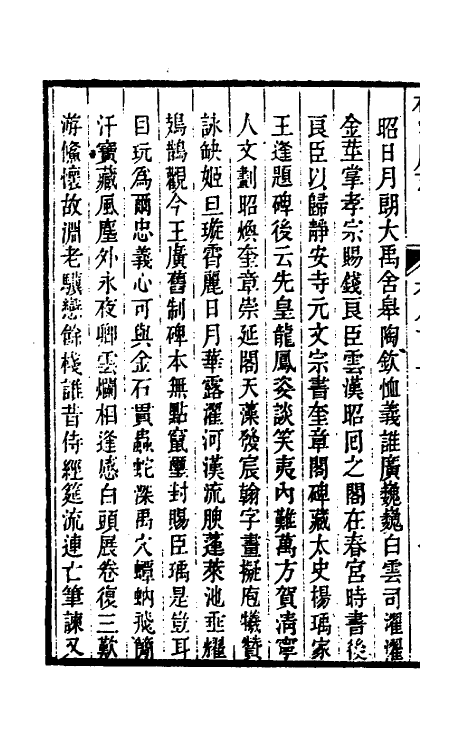 昭日月朗大禹舍皋陶欽恤義誰廣巍巍白雲司濯濯
金莖掌孝宗賜錢良臣雲漢昭回之閣在春宮時書後
良臣以歸靜安寺元文宗書奎章閣碑藏太史揚瑀家
王逢題碑後云先皇龍鳳姿談笑夷內難萬方賀清寧
人文劃昭煥奎章崇延閣天藻發宸翰字畫擬庖犧贊
詠缺姬旦璇霄麗日月華露濯河漢流腴蓬萊池垂耀
鳷鵲觀今王廣舊制碑本無點竄璽封賜臣瑀是豈耳
目玩為爾忠義心可與金石貫蟲蛇深禹穴蟫蚋飛簡
汗寶藏風塵外永夜卿雲爛相逢感白頭展卷復三歎
游鯈懷故淵老驥戀餘棧誰昔侍經筵流連亡筆諫又